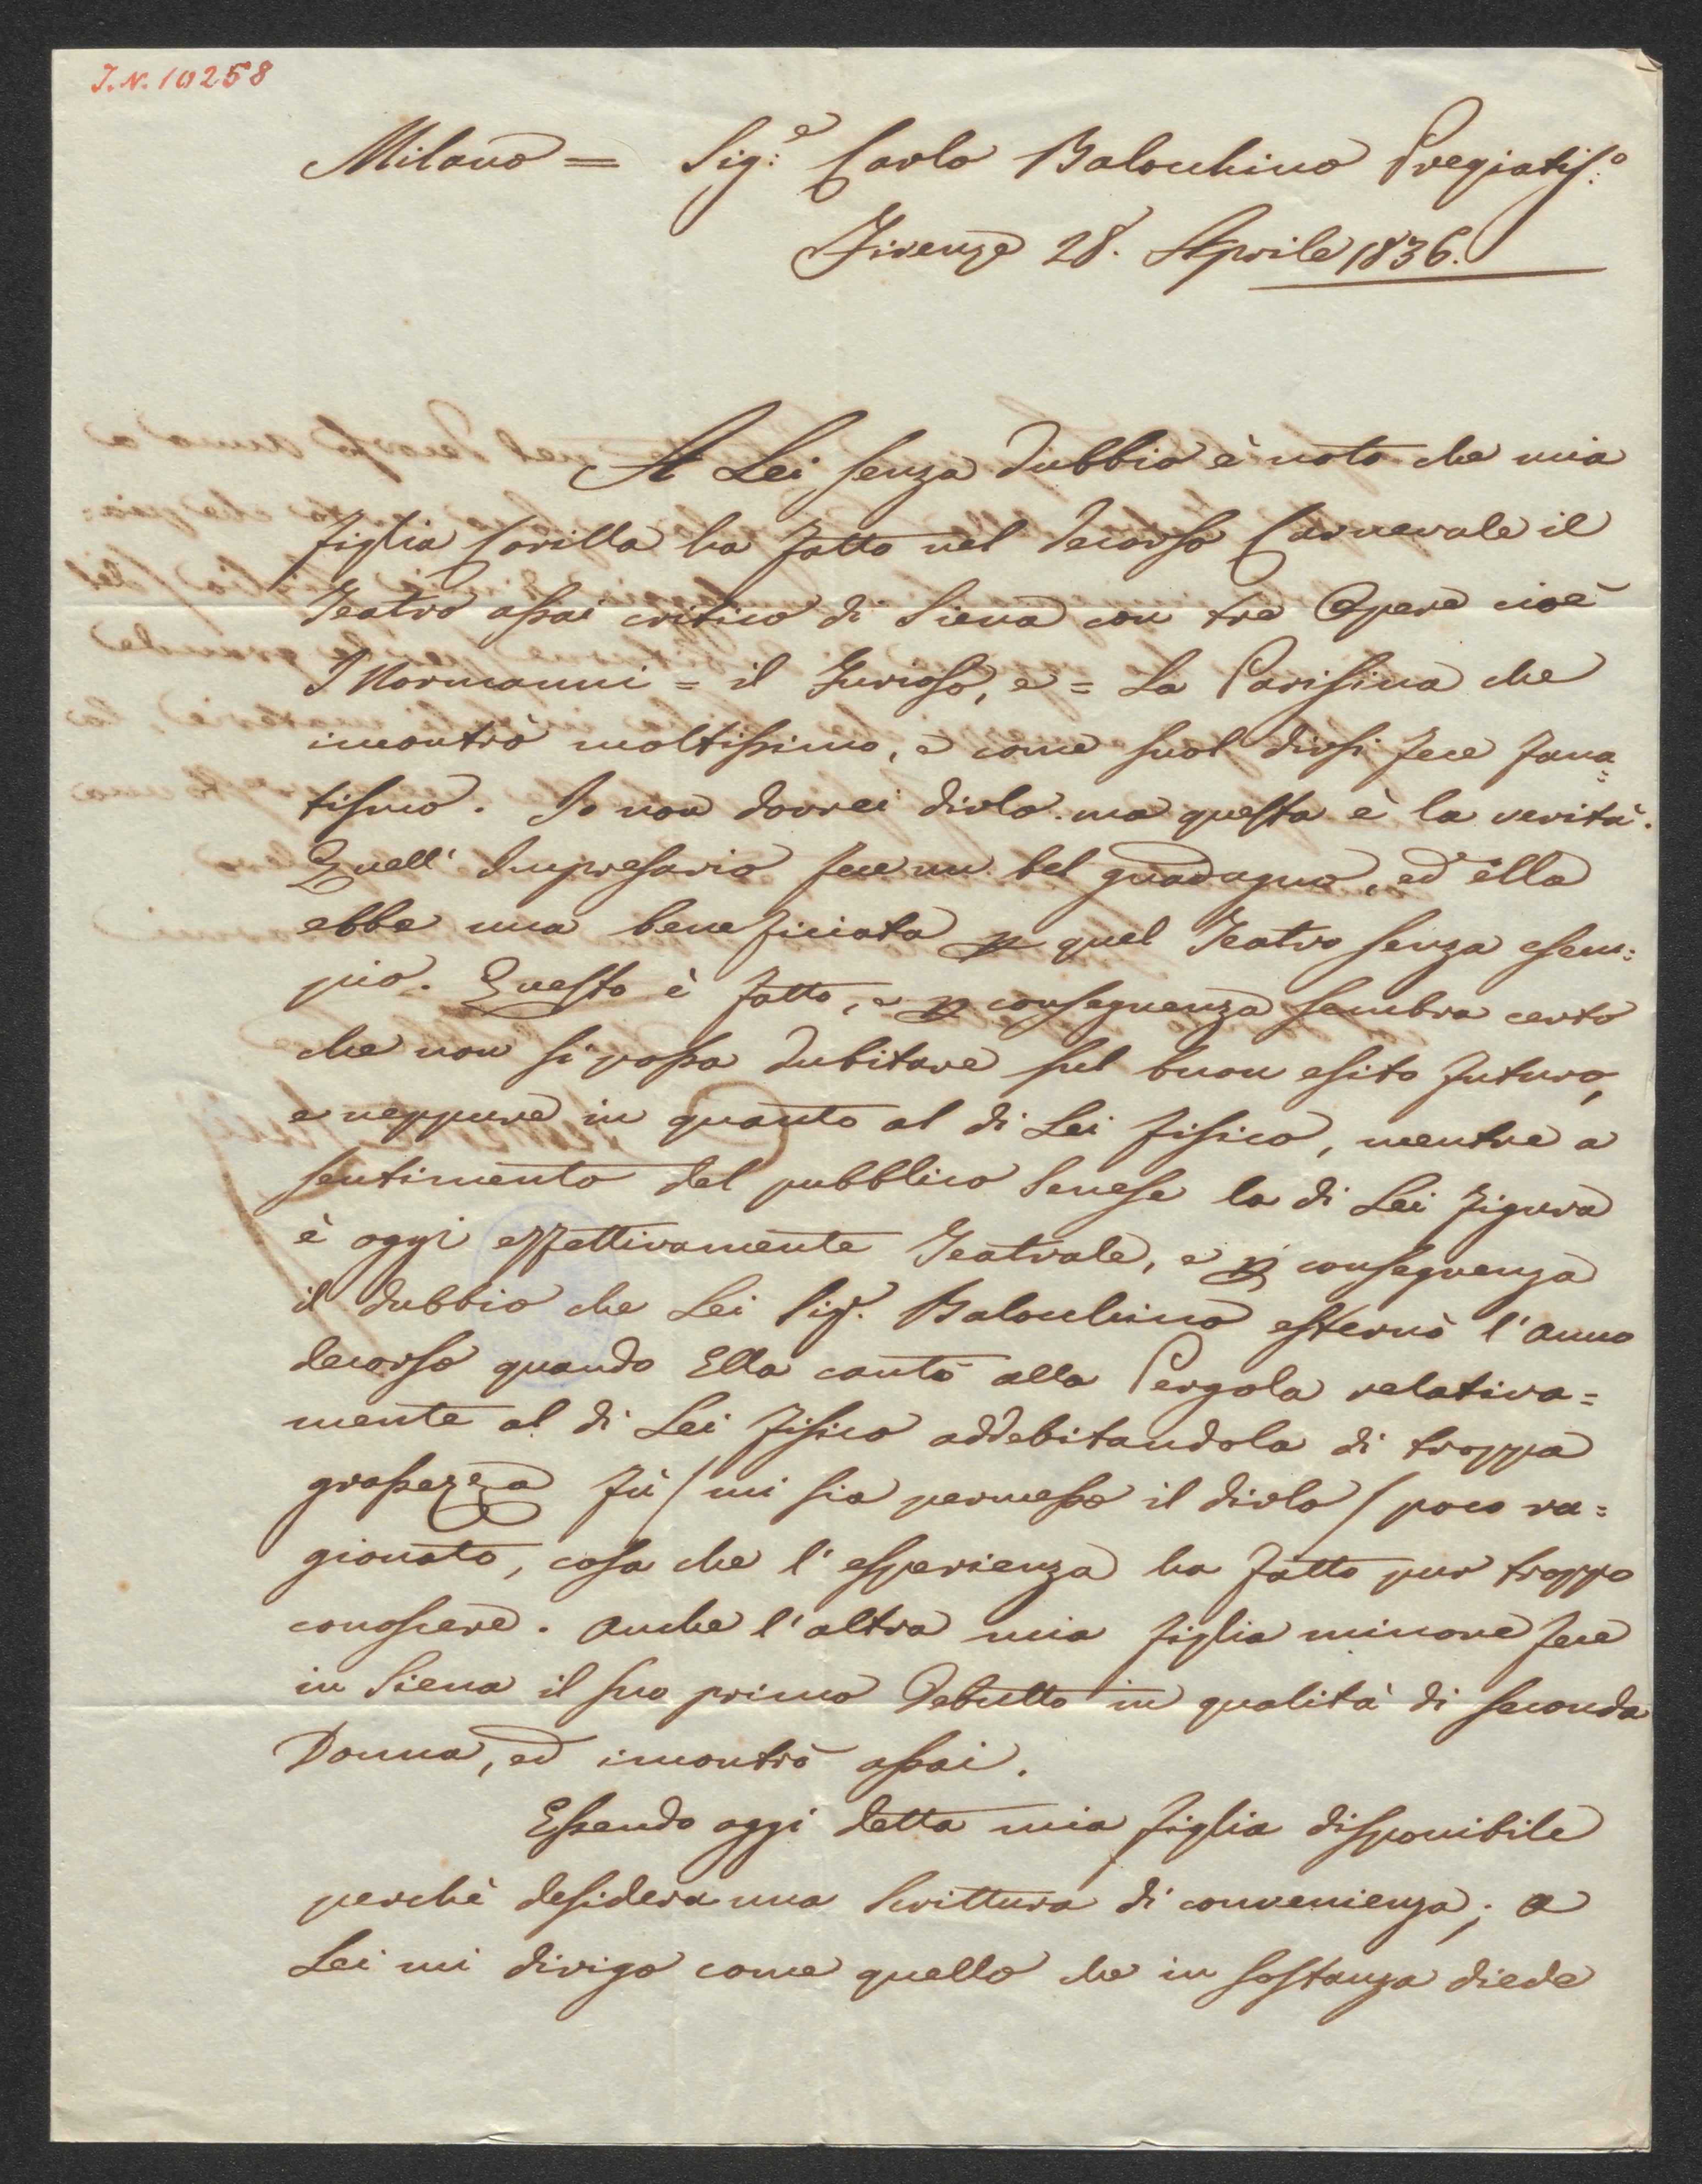 J.N. 10258
Milano = Sig:e Carlo Balochino Pregiatis:o
Firenze 28. Aprile 1836.
A Lei senza dubbio è noto che mia
figlia Carilla ha fatto nel decorso Carnevale il
Teatro assai critico di Siena con tre Opere cioè
I Normanni = il Furioso, e = La Parisina che
incontrò moltissimo, e come suol dirsi fece fana=
tismo. Io non dovrei dirlo. ma questa è la verità.
Quell' Impresario fece un bel guadagno, ed ella
ebbe una beneficiata p quel Teatro senza esem:
pio. Questo è fatto, e p conseguenza sembra certo
che non si possa dubitare sul buon esito futuro,
e neppure in quanto al di Lei fisico, mentre a
sentimento del pubblico Senese la di Lei figura
è oggi effettivamente Teatrale, e p conseguenza
il dubbio che Lei Sigr. Balochino esternò l'anno
decorso quando Ella cantò alla Pergola relativa=
mente al di Lei fisico addebitandola di troppa
grassezza fù / mi sia permesso il dirlo / poco ra=
gionato, cosa che l'esperienza ha fatto pur troppo
conoscere. Anche l'altra mia figlia minore fece
in Siena il suo primo Debutto in qualità di seconda
Donna, ed incontrò assai.
Essendo oggi detta mia figlia disponibile
perchè desidera una Scrittura di convenienza; a
Lei mi dirigo come quello che in sostanza diede